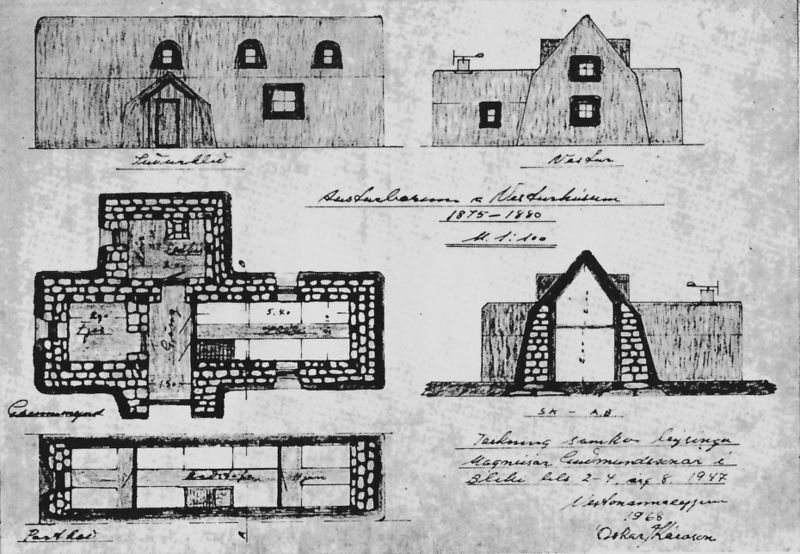 Suðurhlið
Vestur
Austurbærinn á Vesturhúsum
1875-1880
M. 1:100
5.40
Göng
1.50
Grunnmynd
SK - AB
Baðstofa
Hjón
Porthæð
Teikning samkv. lýsingu
Magnúsar Guðmundssonar í
Bliki bls 2-4, árg 8. 1947
Vestmannaeyjum
1968
Óskar Kárason